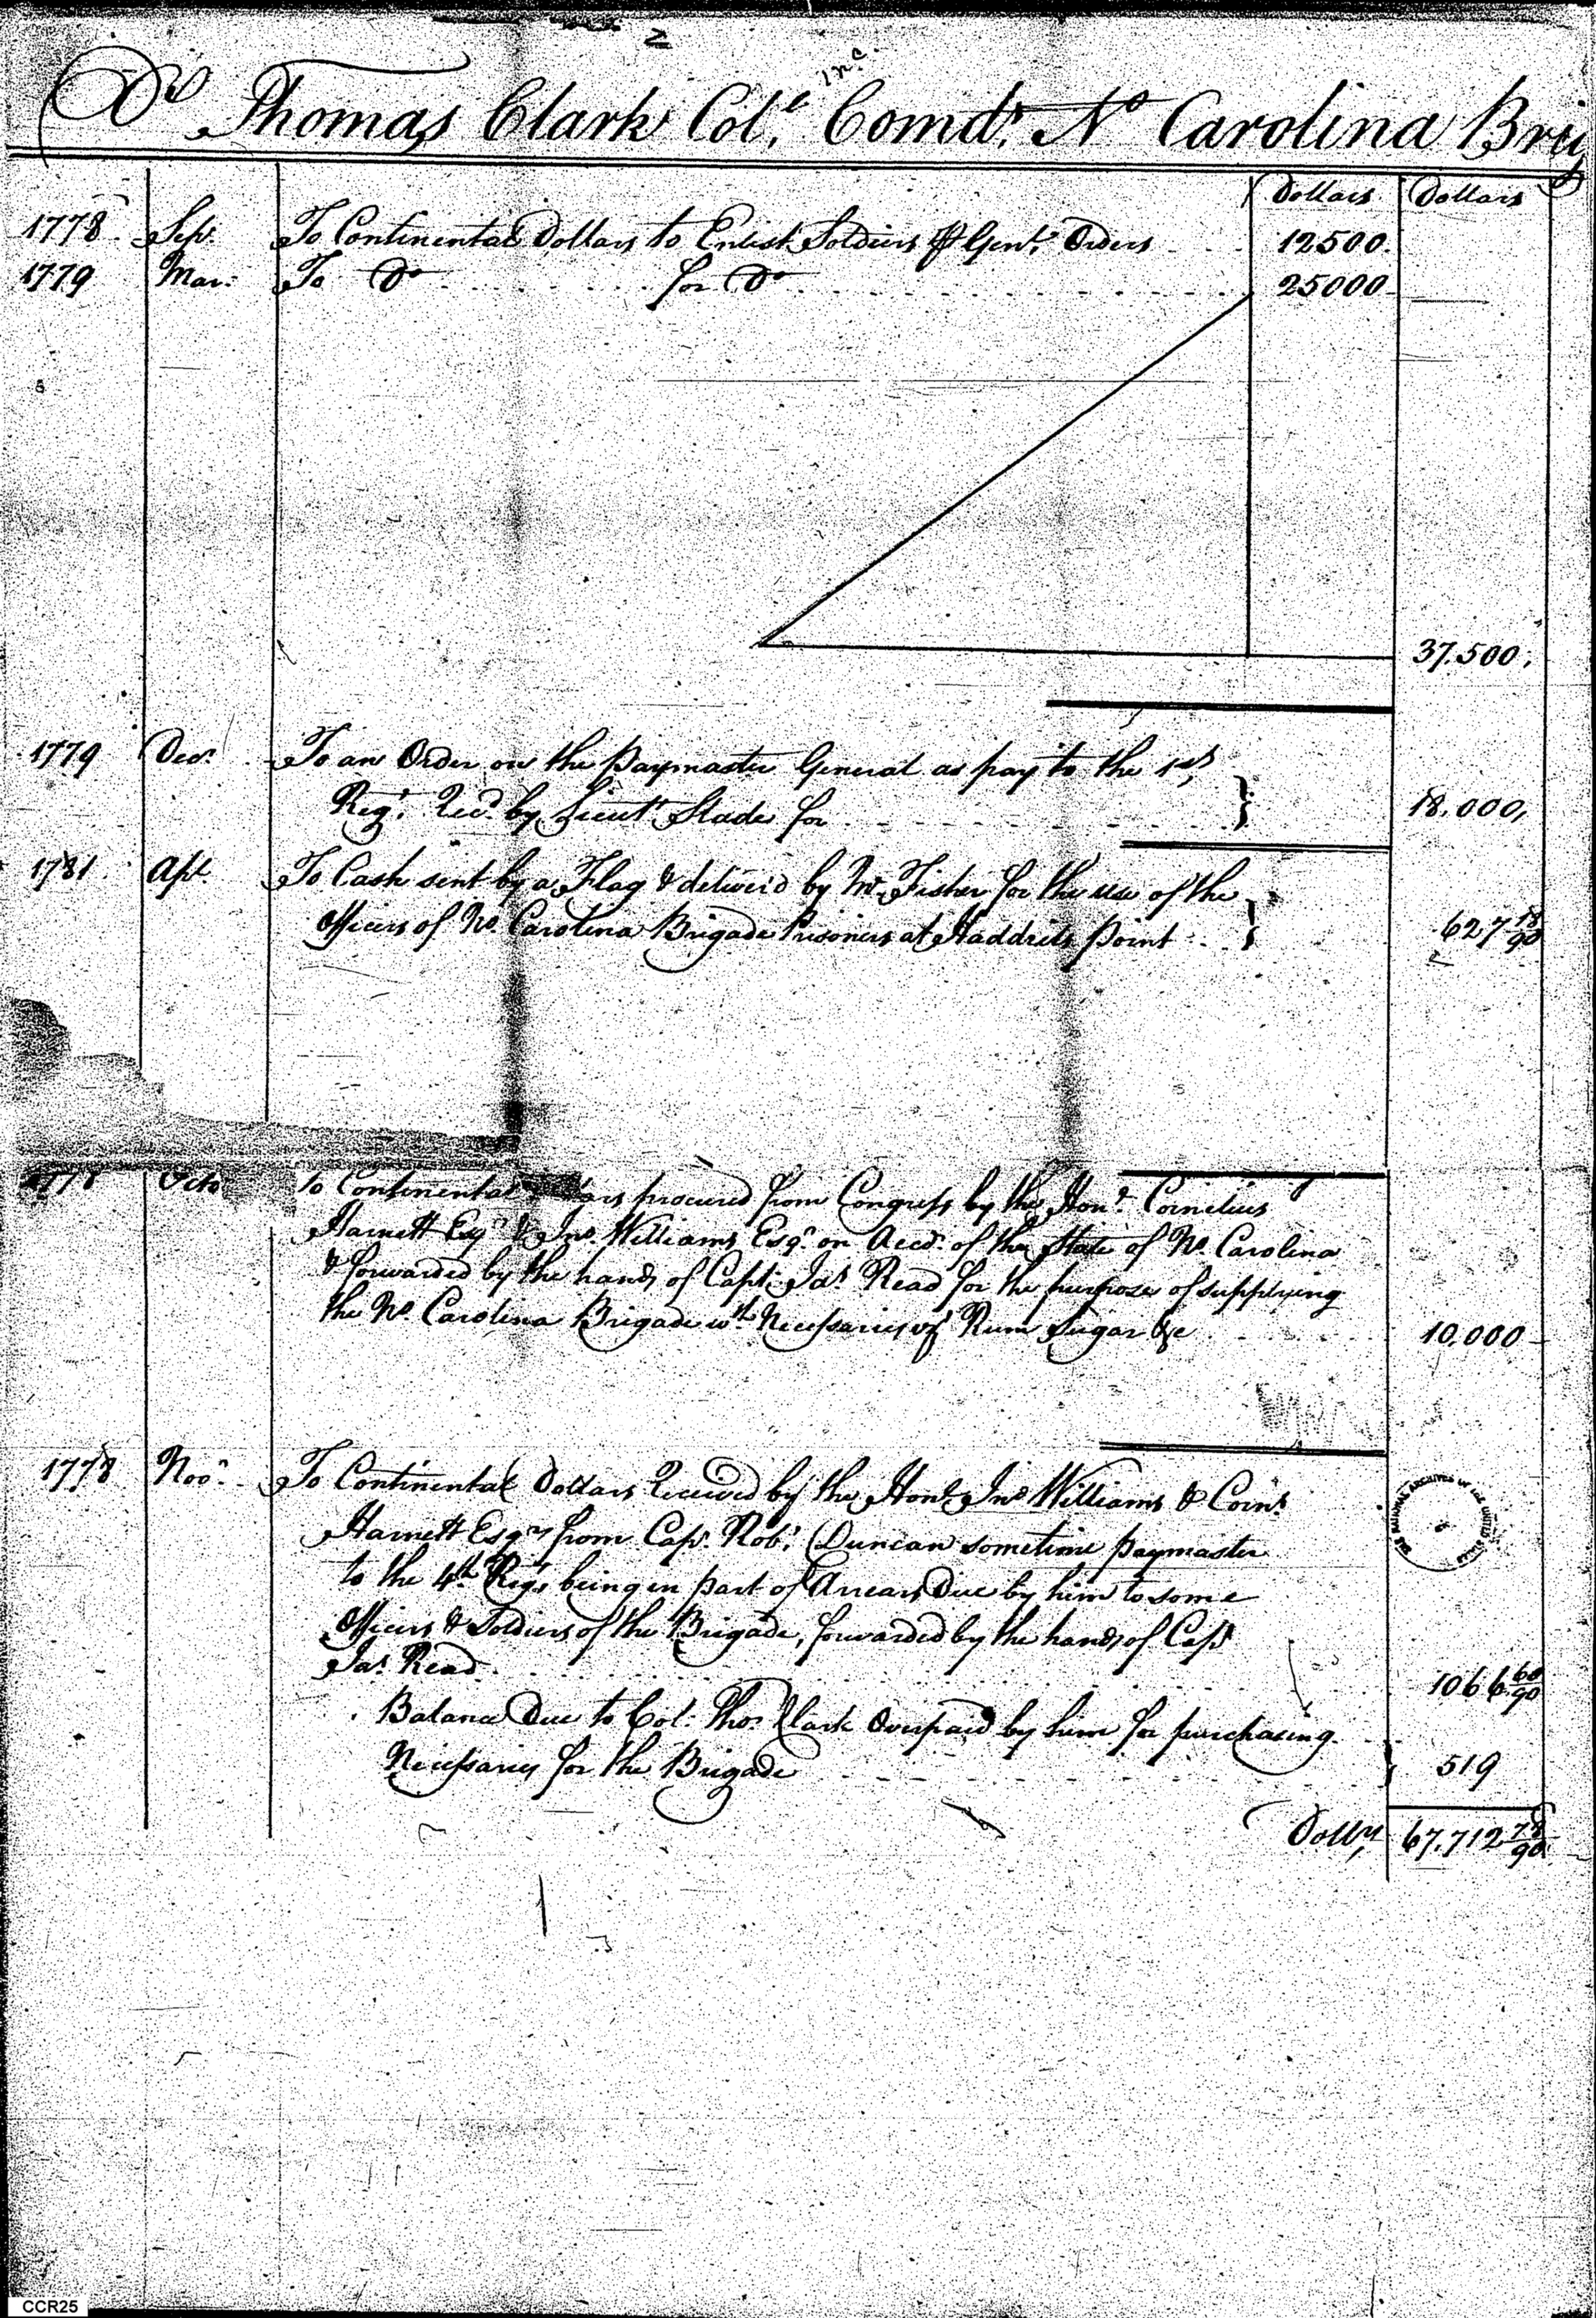 2
Dr Thomas Clark Colo. Comdt. No Carolina Brig
Dollars Dollars
1778 Sepr. To Continental Dollars to Enlist Soldiers ⅌ Genls. Orders 12500.
1779 Mar: To Do for Do 25000
37.500.
1779 Decr. To an Order on the Paymaster General as pay to the 1st
Regt. Recd. by Lieut. Slade for 18.000,
1781 Apl. To Cash sent by a Flag & deliver'd by Mr. Fisher for the use of the
Officers of No. Carolina Brigade Prisoners at Haddrils Point 627 18/90
1778 Octo To Continental procured from Congress by the Honl. Cornelius
Harnett Esqr & Jno. Williams Esqr. on Acct. of the State of No. Carolina
& forwarded by the hands of Capt. Jas. Read for the purpose of supplying
the No. Carolina Brigade wth. Necessaries of Rum Sugar &c 10,000
1778 Novr. To Continental Dollars Received by the Honl. Jno Williams & Corns.
Harnett Esqrs from Capt. Robt. Duncan sometime paymaster
to the 4th. Regt. being in part of Arrears Due by him to some
Officers & Soldiers of the Brigade, forwarded by the hands of Capt
Jas. Read 1066 60/90
Balance Due to Col. Thos. Clark Overpaid by him for purchasing
Necessaries for the Brigade 519
Dollrs 67.712 78/90
CCR25